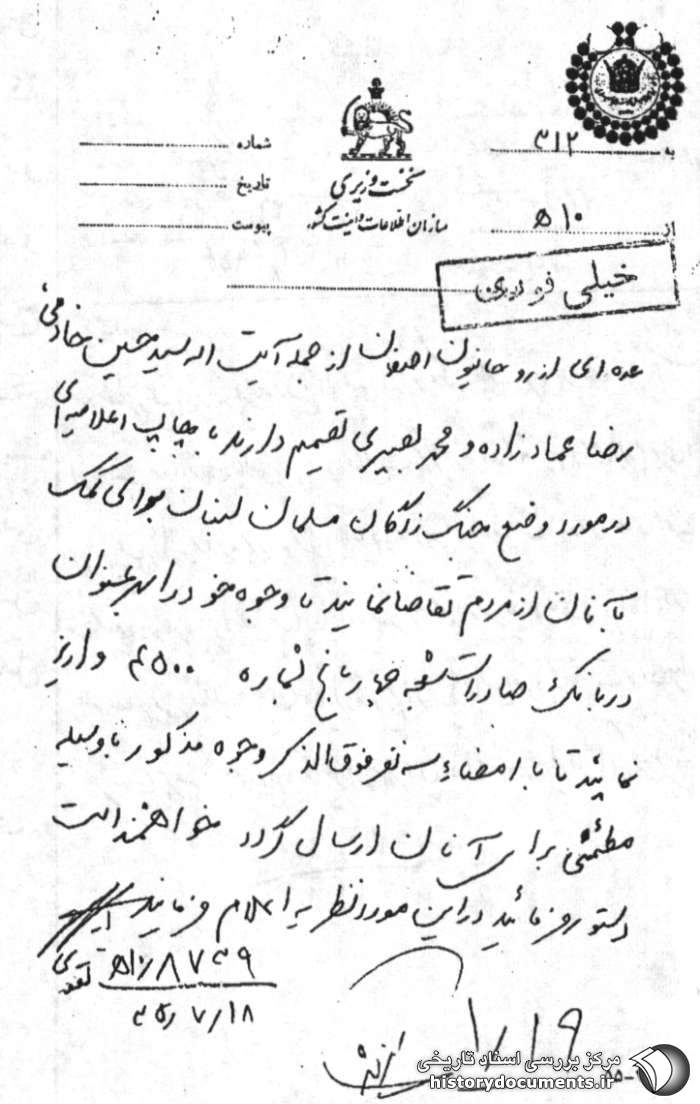 به ۳۱۲
نخست وزیری
سازمان اطلاعات و امنیت کشور
شماره
تاریخ
پیوست
از ۱۰ ه
خیلی فوری
عده ای از روحانیون اصفهان از جمله آیت اله سید حسین خادمی،
رضا عمادزاده و محمد نصیری تصمیم دارند با چاپ اعلامیه ای
در مورد وضع جنگ زدگان مسلمان لبنان برای کمک
بآنان از مردم تقاضا نمایند تا وجوه خود را باین عنوان
در بانک صادرات شعبه چهارباغ شماره ۴۵۰۰ واریز
نمایند تا با امضاء سه نفر فوق الذکر وجوه مذکور باوسیله
مطمئنی برای آنان ارسال گردد خواهشمند است
دستور فرمائید در این مورد نظریه اعلام فرمایند
تقوی
۱۰ه/۸۷۳۹
۳۵/۷/۱۸
۷/۱۹
مرکز بررسی اسناد تاریخی
historydocuments.ir